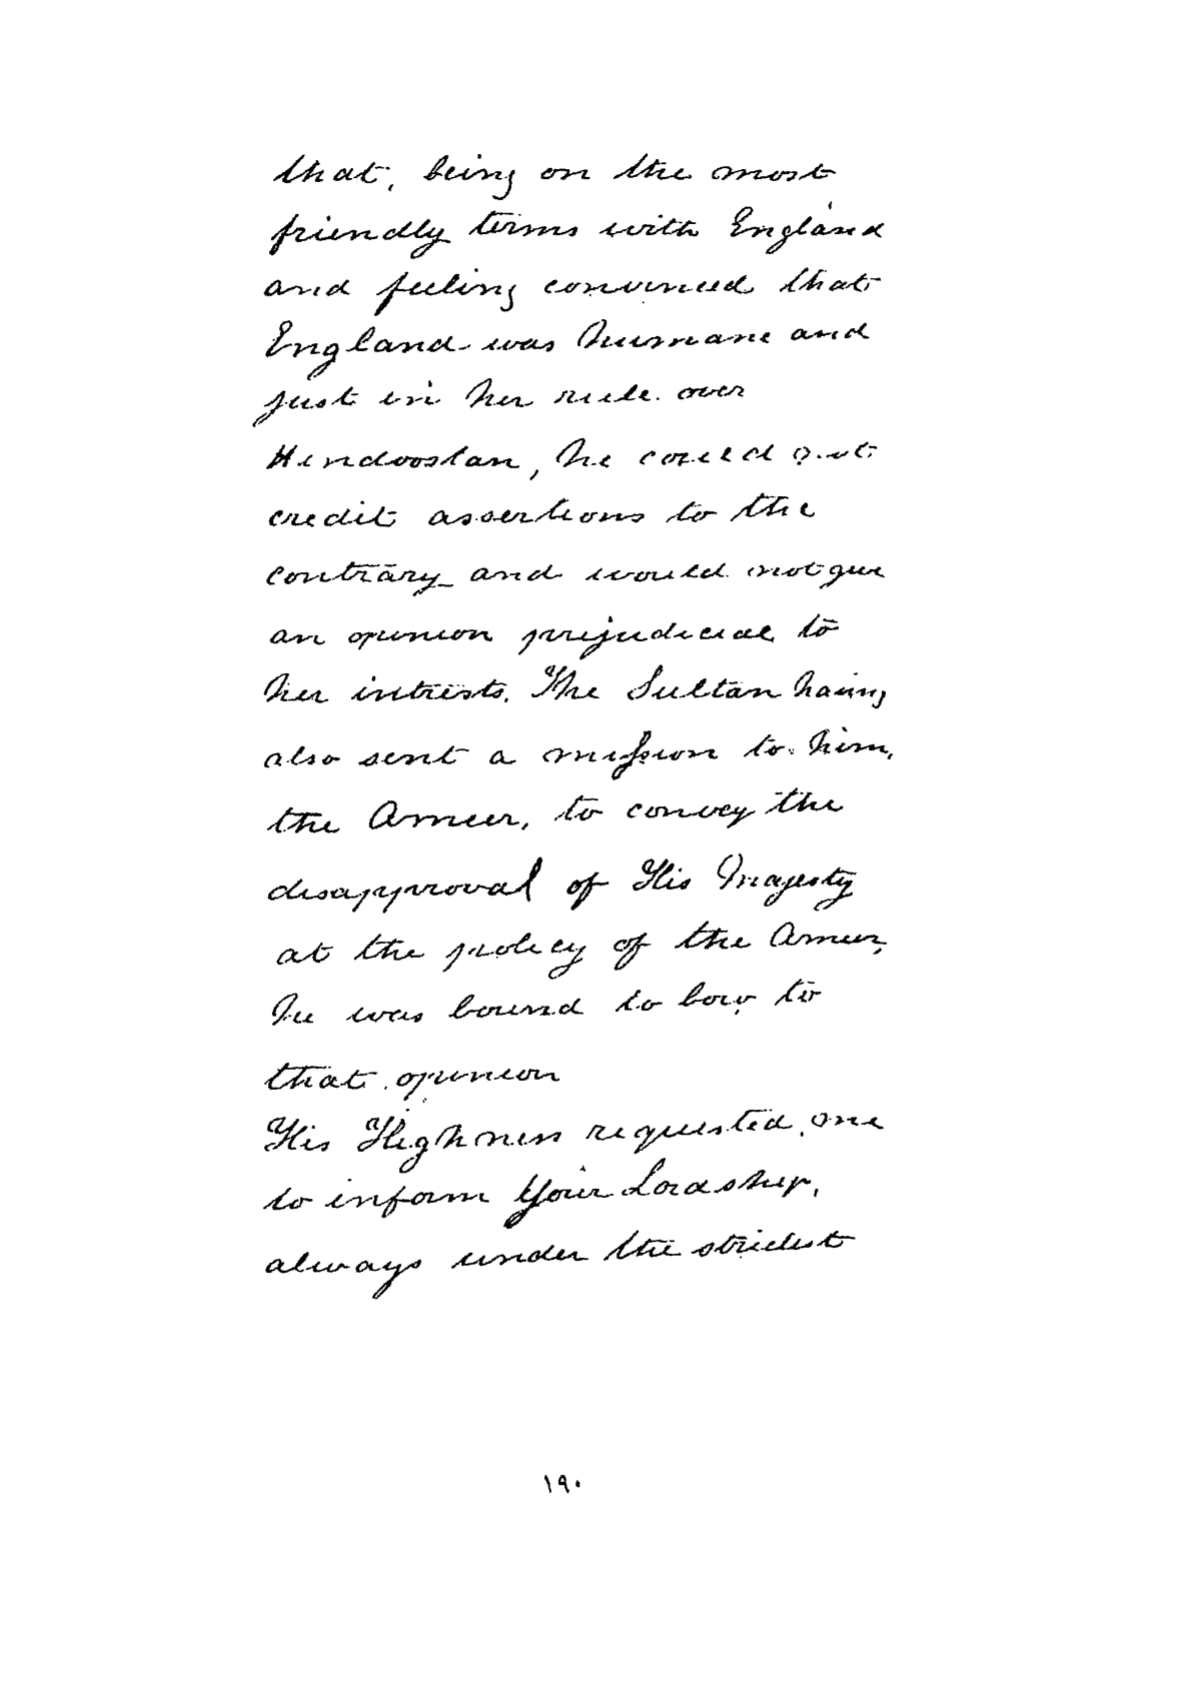 that, being on the most
friendly terms with England
and feeling convinced that
England was humane and
just in her rule over
Hindoostan, he could not
credit assertions to the
contrary and would not give
an opinion prejudicial to
her intrests. The Sultan having
also sent a mission to him,
the Ameer, to convey the
disapproval of His Majesty
at the policy of the Ameer,
he was bound to bow to
that opinion
His Highness requested me
to inform Your Lordship,
always under the strictest
١٩٠